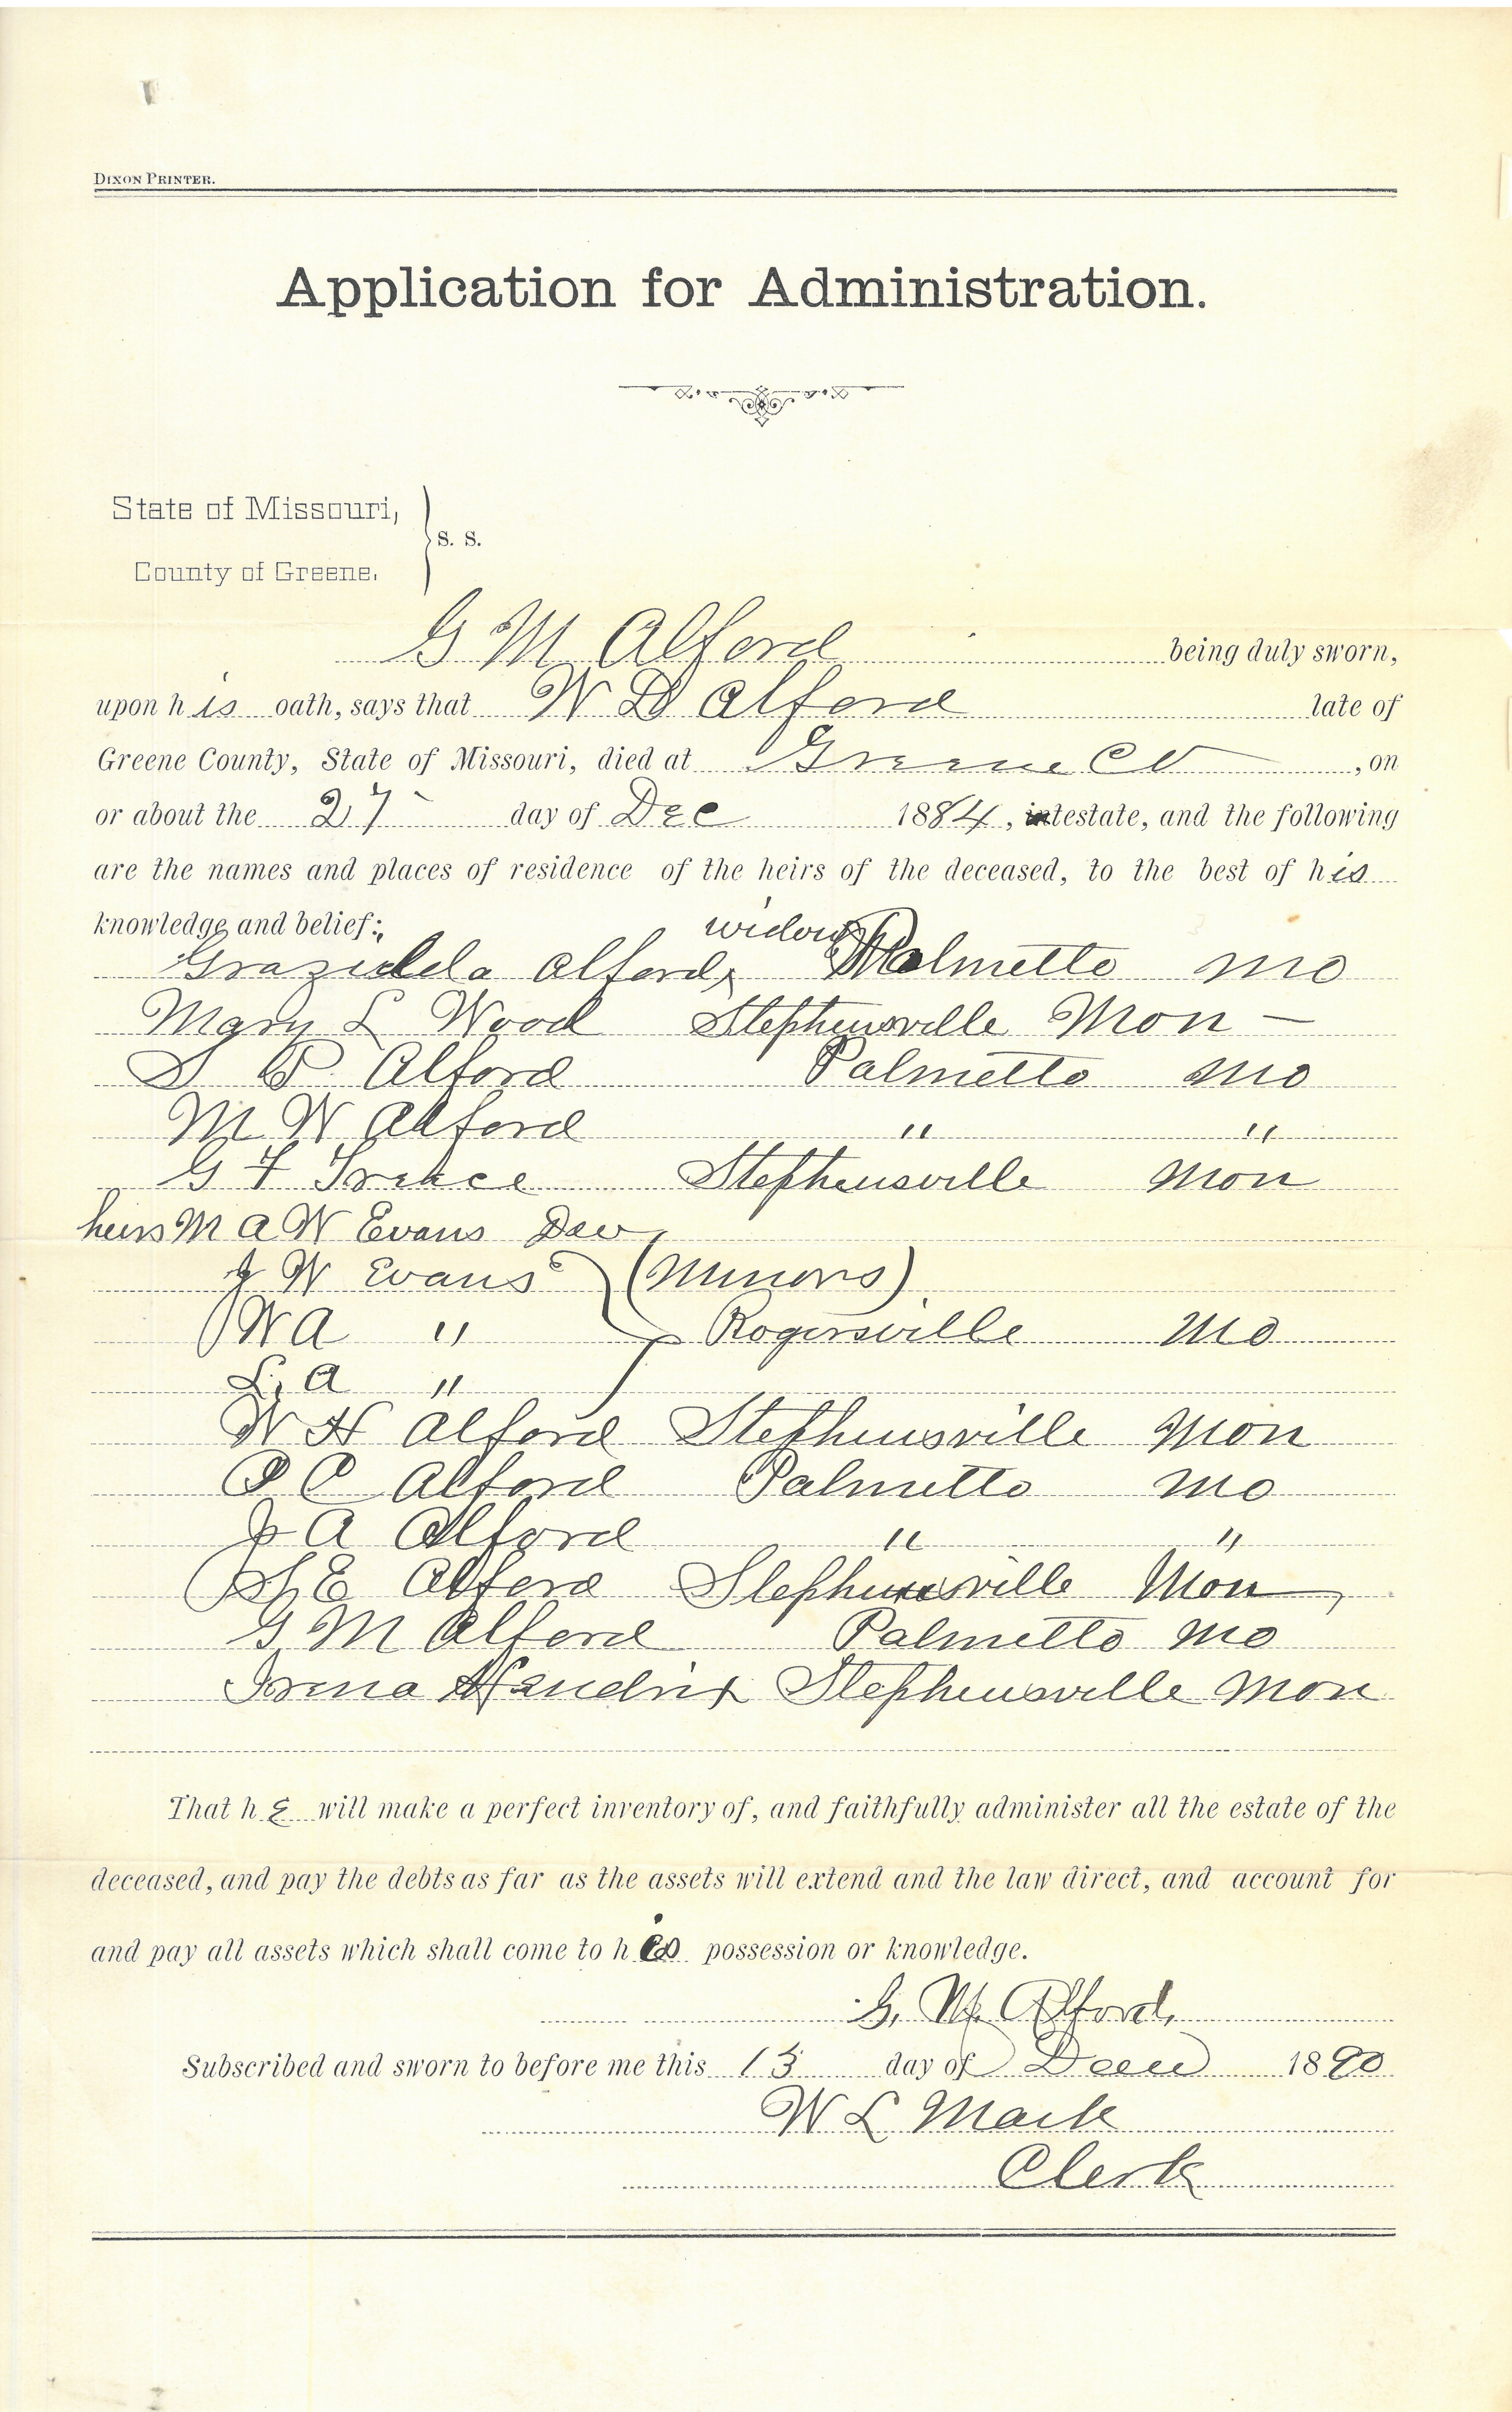 DIXON PRINTER.
Application for Administration.
State of Missouri,
County of Greene. } s. s.
G M Alford being duly sworn,
upon his oath, says that W D Alford late of
Greene County, State of Missouri, died at Greene Co, on
or about the 27 day of Dec 1884, testate, and the following
are the names and places of residence of the heirs of the deceased, to the best of his
knowledge and belief:
widow
Alford, Palmetto Mo
Mary L Wood Stephensville Mon —
S P Alford Palmetto Mo
M W Alford " "
G F Stephensville Mon
heirs M A W Evans
J W Evans (Minors)
W A " Rogersville Mo
L, A "
W H Alford Stephensville Mon
P C Alford Palmetto Mo
J A Alford " "
E Alford Stephensville Mon,
G M Alford Palmetto Mo
Hendrix Stephensville Mon
That he will make a perfect inventory of, and faithfully administer all the estate of the
deceased, and pay the debts as far as the assets will extend and the law direct, and account for
and pay all assets which shall come to his possession or knowledge.
G. M. Alford,
Subscribed and sworn to before me this 13 day of 1890
W L Mack
Clerk